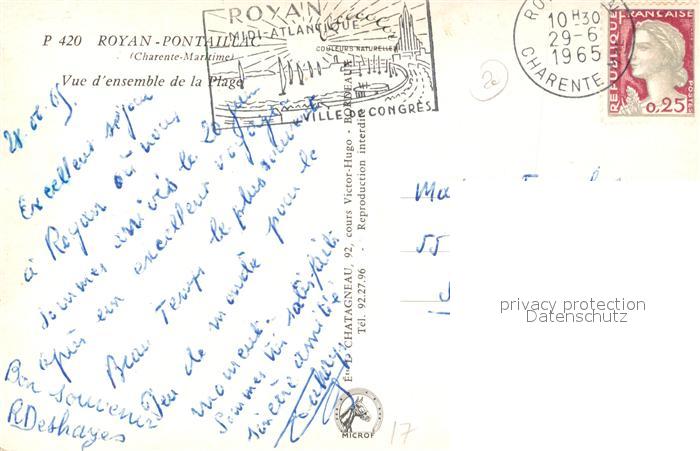 P 420 ROYAN-PONTAILLAC
(Charente-Maritime)
Vue d'ensemble de la Plage
ROYAN
MIDI-ATLANTIQUE
COULEURS NATURELLES
VILLE DE CONGRÈS
10 H 30
29-6
1965
CHARENTE
REPUBLIQUE FRANÇAISE
POSTES
0,25F
28.06.65
Excellent séjour
à Royan où nous
sommes arrivés le 20 juin
après un excellent voyage
Beau Temps le plus souvent
Peu de monde pour le
moment.
Sommes très satisfaits
sincère amitié
Bon souvenir
R Deshayes
Éts D. CHATAGNEAU, 92, cours Victor-Hugo - BORDEAUX
Tél. 92.27.96 - Reproduction interdite
MICROF
55
17
privacy protection
Datenschutz